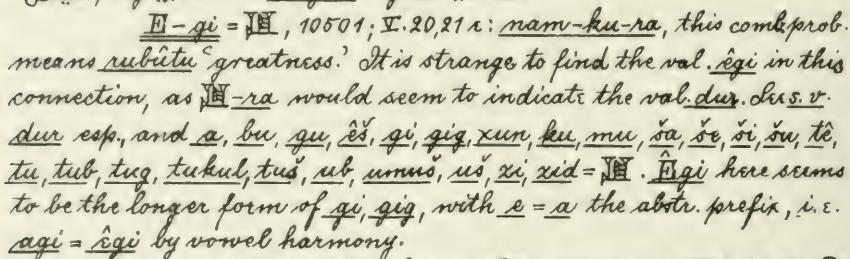 E-gi = 𒆪, 10501; V. 20,21 c: nam-ku-ra, this comb. prob.
means rubûtu ‘greatness.’ It is strange to find the val. êgi in this
connection, as 𒆪-ra would seem to indicate the val. dur. See s. v.
dur esp., and a, bu, gu, êš, gi, gig, xun, ku, mu, ša, še, ši, šu, tê,
tu, tub, tug, tukul, tuš, ub, umuš, uš, xi, xid = 𒆪. Êgi here seems
to be the longer form of gi, gig, with e = a the abstr. prefix, i. e.
agi = êgi by vowel harmony.